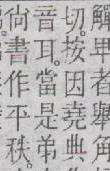 甲者舉角
切。按因堯典
音耳。當是弟
尚書作平秩。